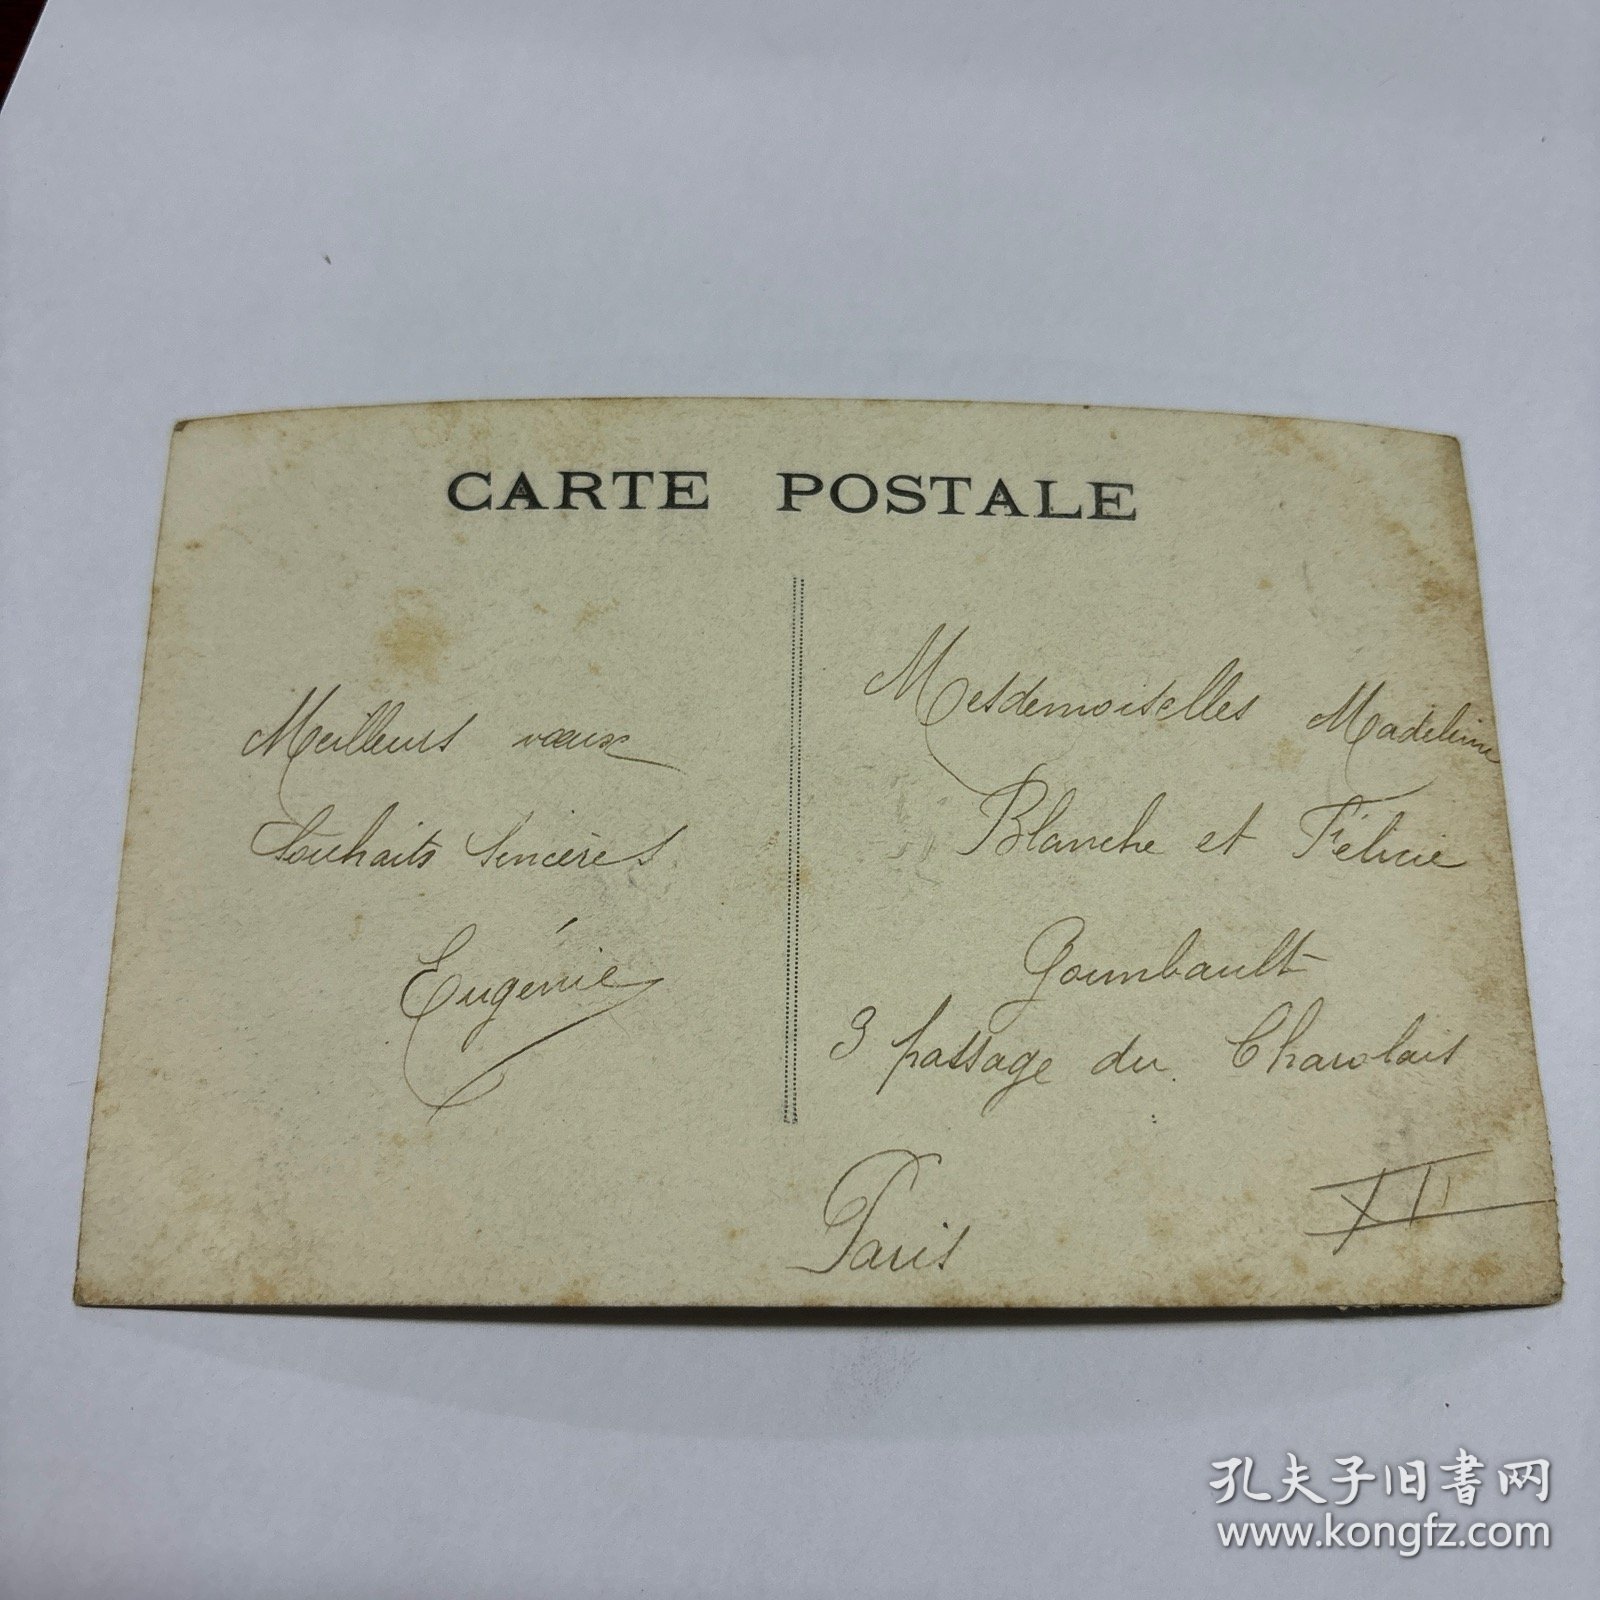 CARTE POSTALE
Meilleurs vœux
Souhaits Sincères
Eugénie
Mesdemoiselles Madeleine
Blanche et Félicie
Goumbault
3 passage du Charolais
Paris
XII
孔夫子旧书网
www.kongfz.com